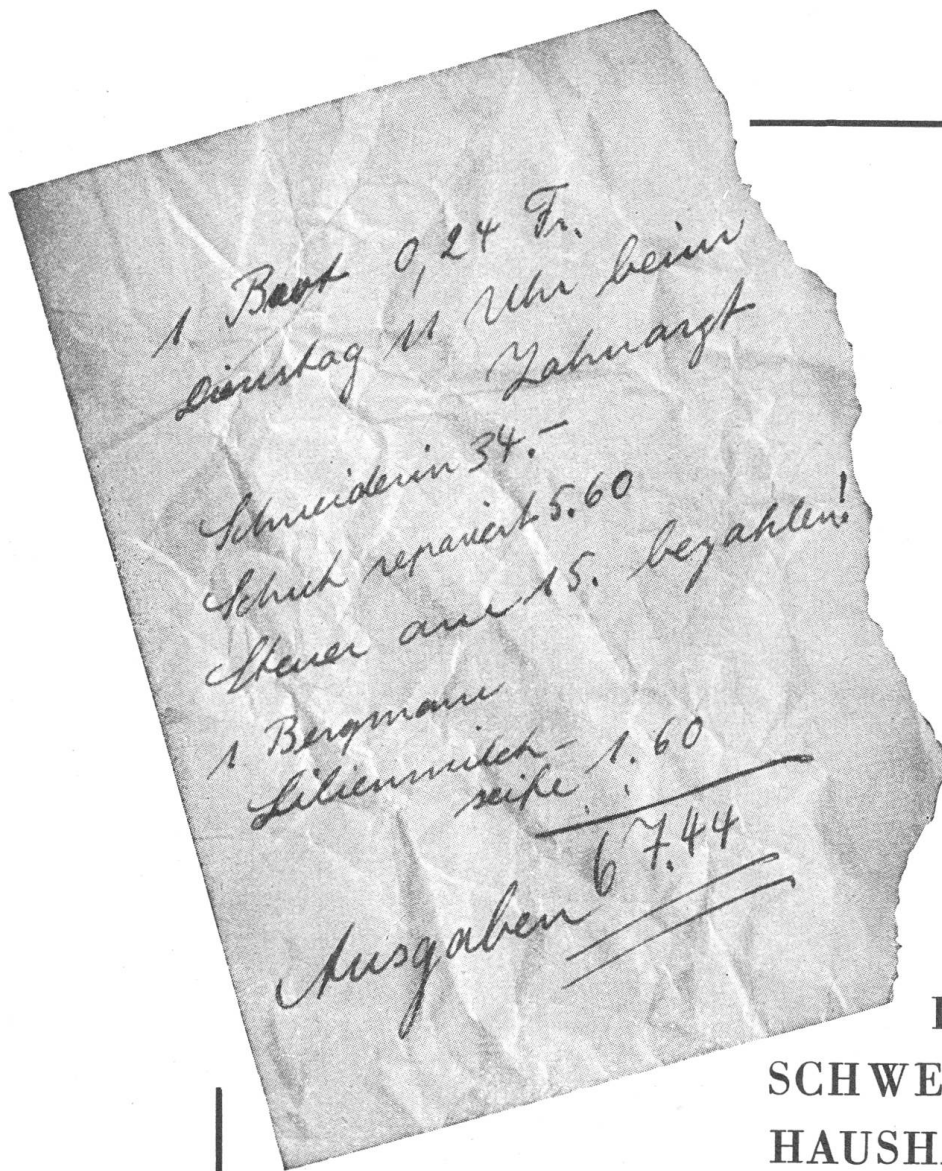 1 Brot 0,24 Fr.
Dienstag 11 Uhr beim
Zahnarzt
Schneiderin 34.–
Schuh repariert 5.60
Steuer am 15. bezahlen!
1 Bergmann
Lilienmilch-
seife 1.60
Ausgaben 67.44
SCHWE
HAUSH